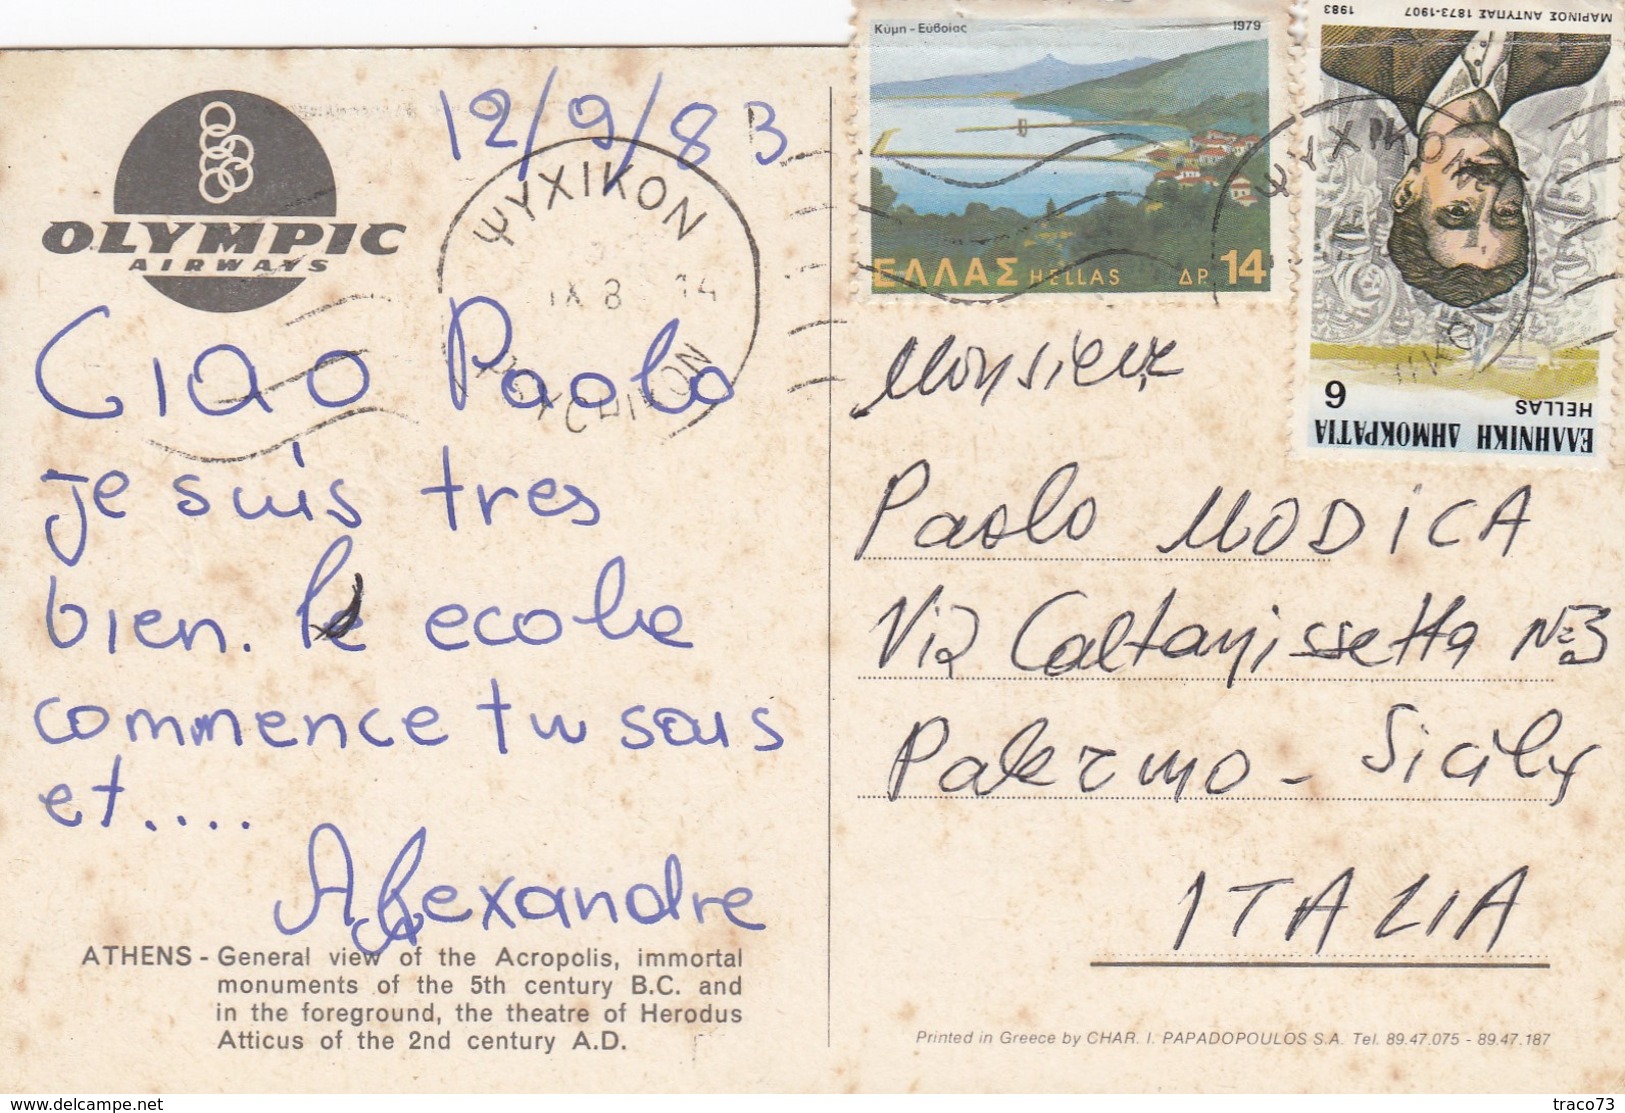 12/9/83
OLYMPIC
AIRWAYS
ΨΥΧΙΚΟΝ
IX 8 14
PSYCHIKON
Κύμη - Εύβοίας 1979
ΕΛΛΑΣ HELLAS ΔΡ. 14
ΜΑΡΙΝΟΣ ΑΝΤΥΠΑΣ 1873-1907 1983
6
HELLAS
ΕΛΛΗΝΙΚΗ ΔΗΜΟΚΡΑΤΙΑ
ΨΥΧΙΚΟΝ
Ciao Paolo
je suis tres
bien. le ecole
commence tu sais
et....
Alexandre
ATHENS - General view of the Acropolis, immortal
monuments of the 5th century B.C. and
in the foreground, the theatre of Herodus
Atticus of the 2nd century A.D.
Monsieur
Paolo MODICA
Via Caltanissetta No 3
Palermo - Sicily
ITALIA
Printed in Greece by CHAR. I. PAPADOPOULOS S.A. Tel. 89.47.075 - 89.47.187
©Delcampe.net
traco73